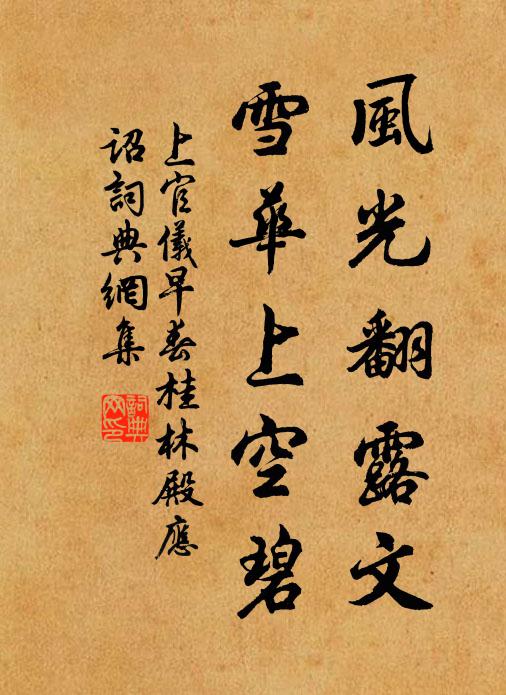 風光翻露文
雪華上空碧
上官儀早春桂林殿應
詔詞典網集
詞典
网印